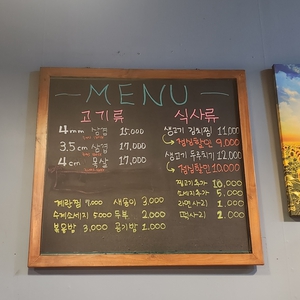 MENU
고기류
4mm 삼겹 15,000
3.5cm 삼겹 17,000
4cm 목살 17,000
식사류
생고기 김치찌 11,000
점심할인 9,000
생고기 두루치기 12,000
점심할인 10,000
찌고기추가 10,000
소세지추가 5,000
라면사리 1,000
떡사리 2,000
계란찜 7,000
수제소세지 5,000
볶음밥 3,000
새송이 3,000
두부 2,000
공기밥 1,000